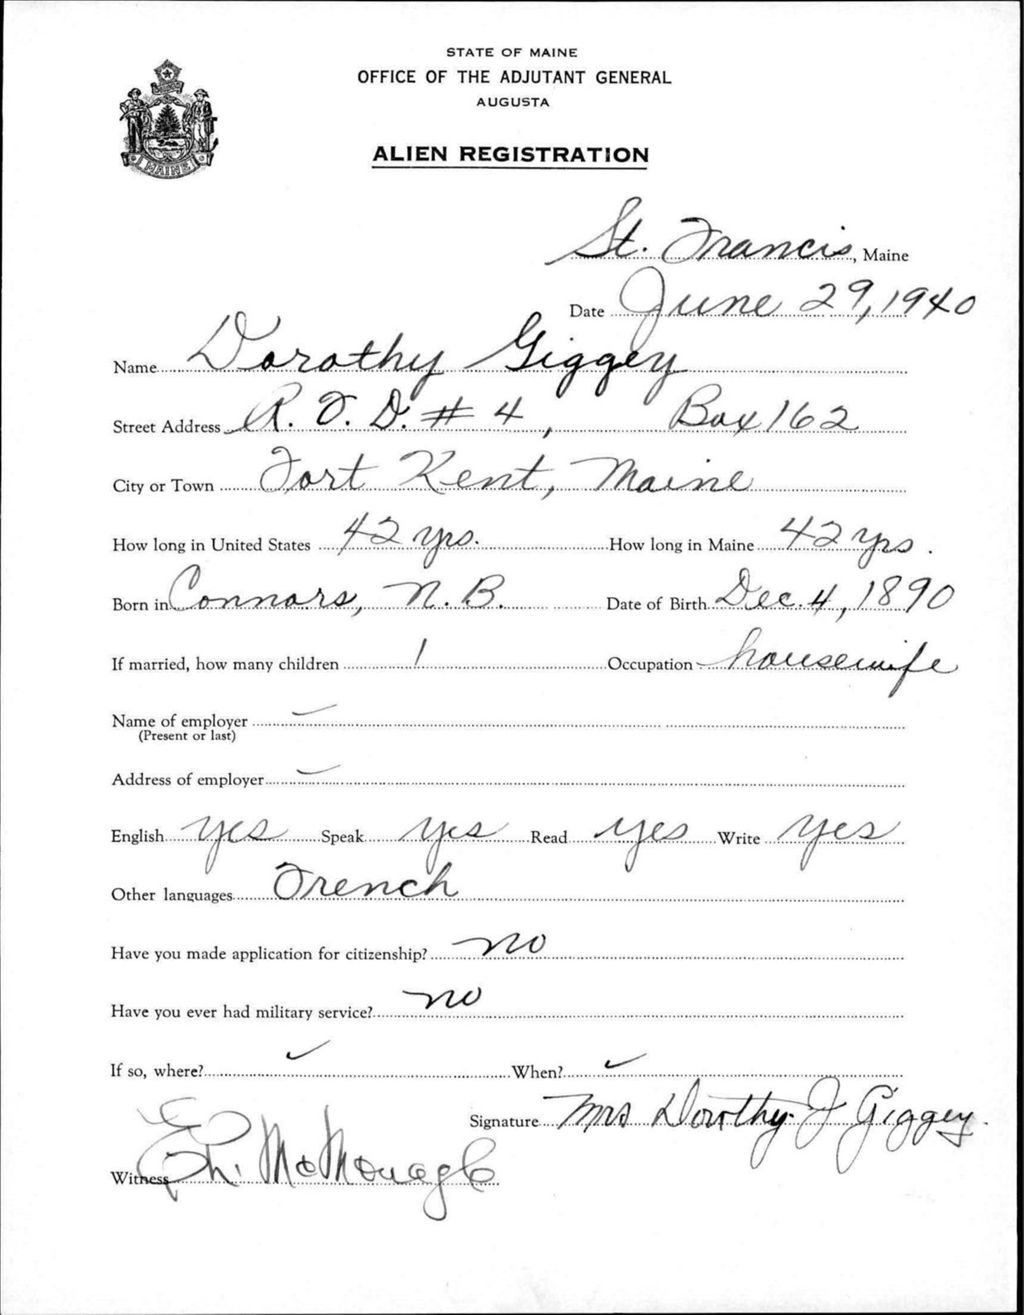 STATE OF MAINE
OFFICE OF THE ADJUTANT GENERAL
AUGUSTA
ALIEN REGISTRATION
MAINE
St. Francis, Maine
Date June 29, 1940
Name Dorothy Giggey
Street Address R. F. D. # 4, Box 162
City or Town Fort Kent, Maine
How long in United States 42 yrs. How long in Maine 42 yrs.
Born in Connors, N. B. Date of Birth Dec. 4, 1890
If married, how many children 1 Occupation housewife
Name of employer
(Present or last)
Address of employer
English yes Speak yes Read yes Write yes
Other languages French
Have you made application for citizenship? no
Have you ever had military service? no
If so, where? When?
Signature Mrs Dorothy J Giggey.
Witness McMonagle